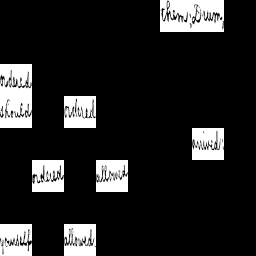 them; Drum,
ordered
should ordered
arrived;
ordered allowed
yourself allowed